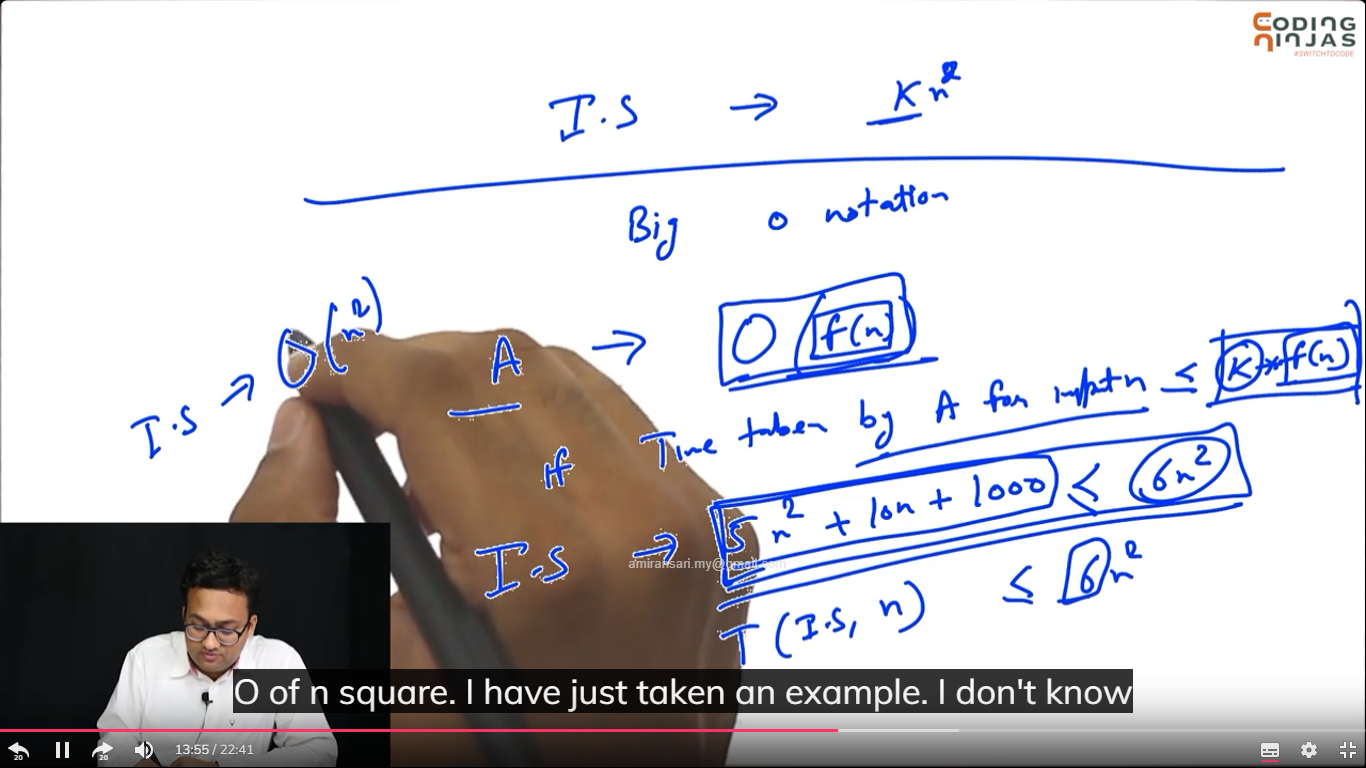 CODING
NINJAS
#SWITCHTOCODE
I.S → Kn²
Big O notation
I.S → O(n²)
A → O(f(n))
If Time taken by A for input n ≤ K * f(n)
I.S → 5n² + 10n + 1000 ≤ 6n²
T(I.S, n) ≤ 6n²
O of n square. I have just taken an example. I don't know
20 20 13:55 / 22:41